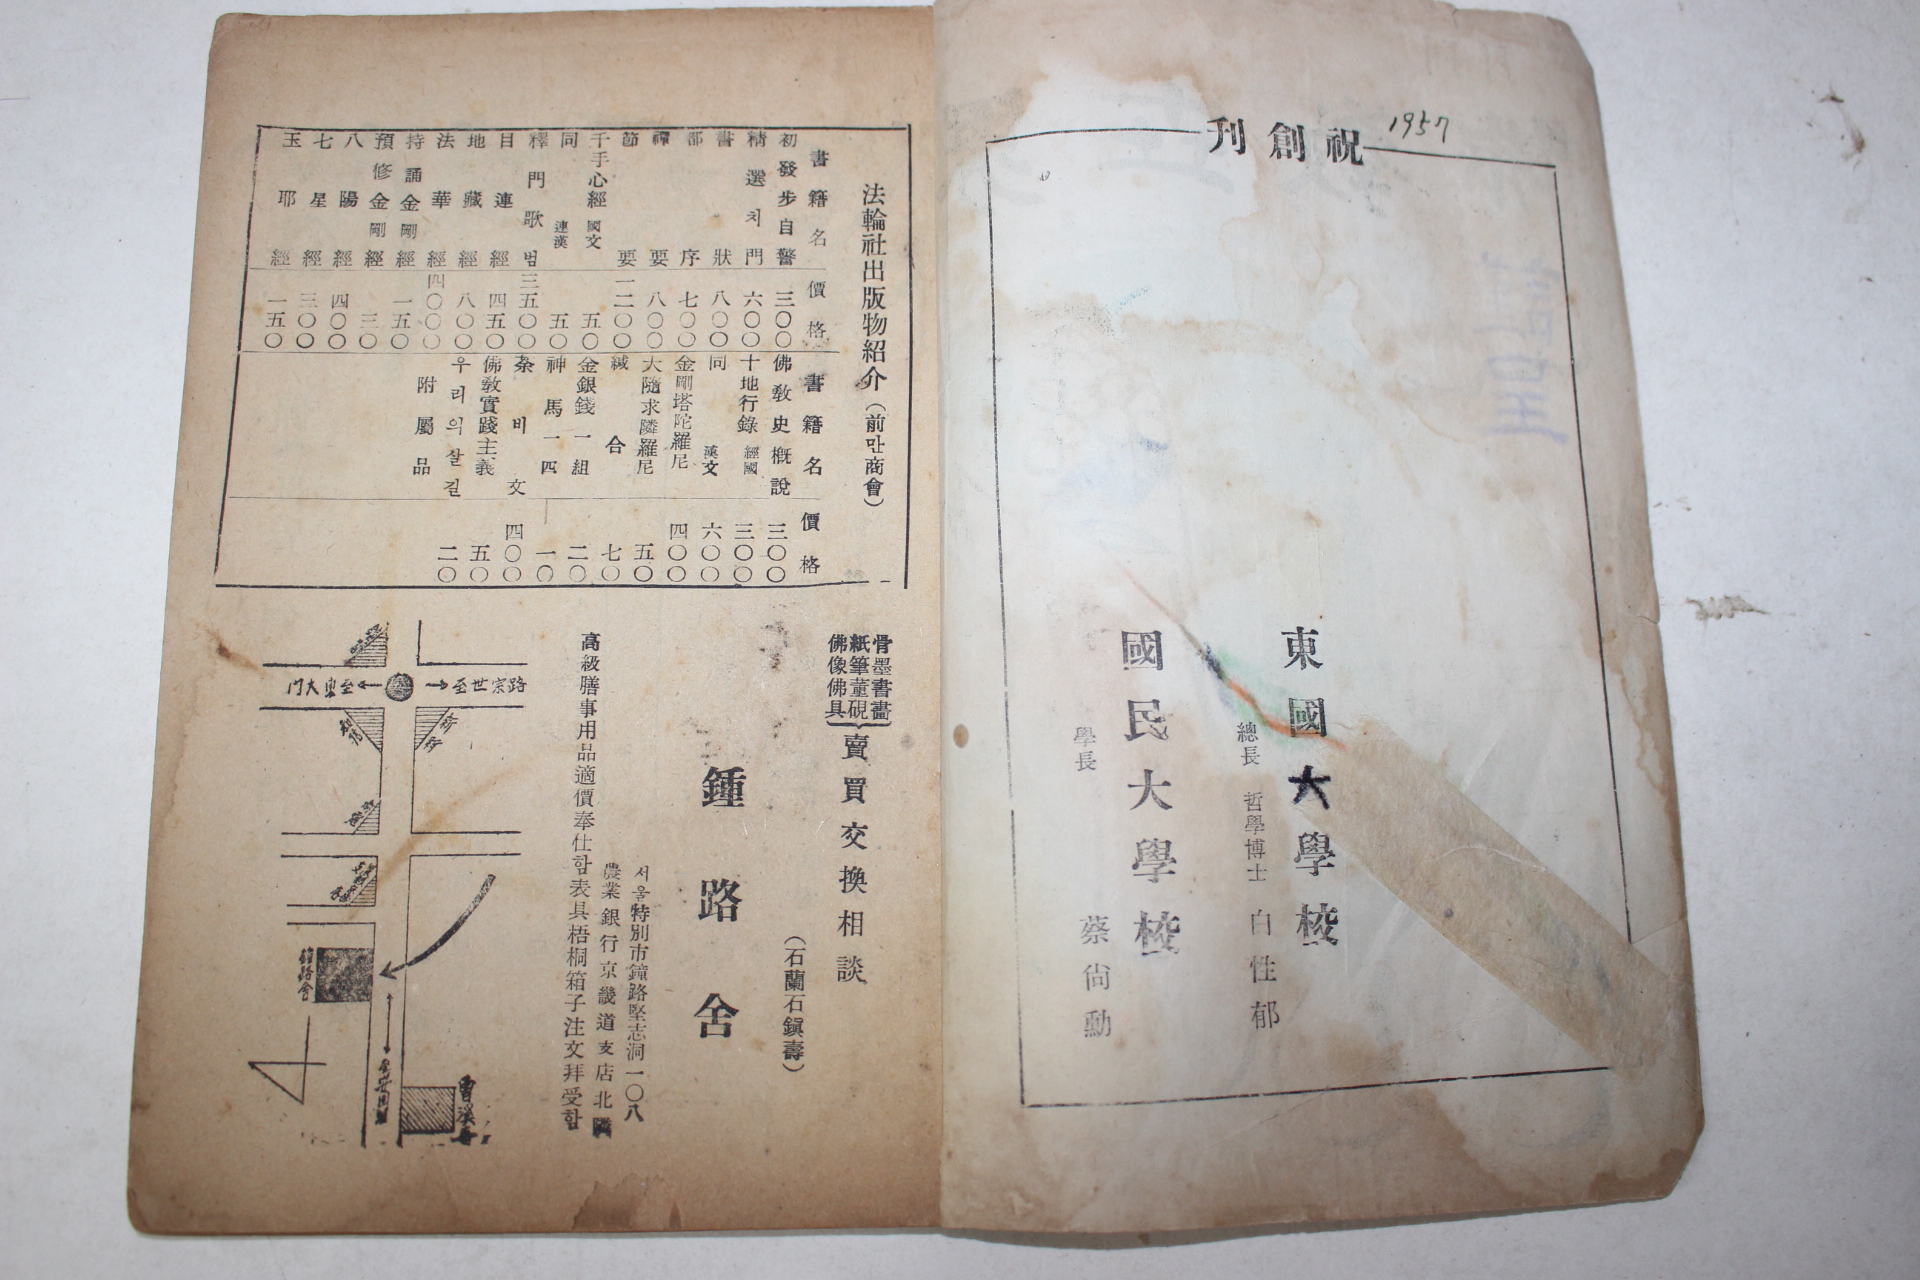 1957
祝創刊
東國大學校
總長 哲學博士 白性郁
國民大學校
學長 蔡尙勳
法輪社出版物紹介(前吐商會)
書籍名 價格 書籍名 價格
初發步自警 三〇〇 佛敎史槪說 三〇〇
精選치門 六〇〇 十地行錄 經國 三〇〇
書狀 八〇〇 同 漢文 六〇〇
都序 七〇〇 金剛塔陀羅尼 四〇〇
禪要 八〇〇 大隨求陀羅尼 五〇
節要 一二〇〇 緘合 七〇
千手心經 國文 五〇 金銀錢一組 二〇
同 連漢 五〇 神馬一匹 一〇
釋門歌범 三五〇〇 祭비文 四〇〇
目連經 四五〇 佛敎實踐主義 五〇
地藏經 八〇〇 우리의살길 二〇
法華經 四〇〇〇 附屬品
持誦金剛經 一五〇
預修金剛經 三〇
八陽經 四〇〇
七星經 三〇〇
玉耶經 一五〇
骨墨書畵
紙筆董硯
佛像佛具
賣買交換相談
(石蘭石鎭壽)
鍾路舍
서울特別市鐘路堅志洞一〇八
農業銀行京畿道支店北隣
高級膳事用品適價奉仕함表具梧桐箱子注文拜受함
至東大門
至世宗路
鍾路舍
曹溪寺